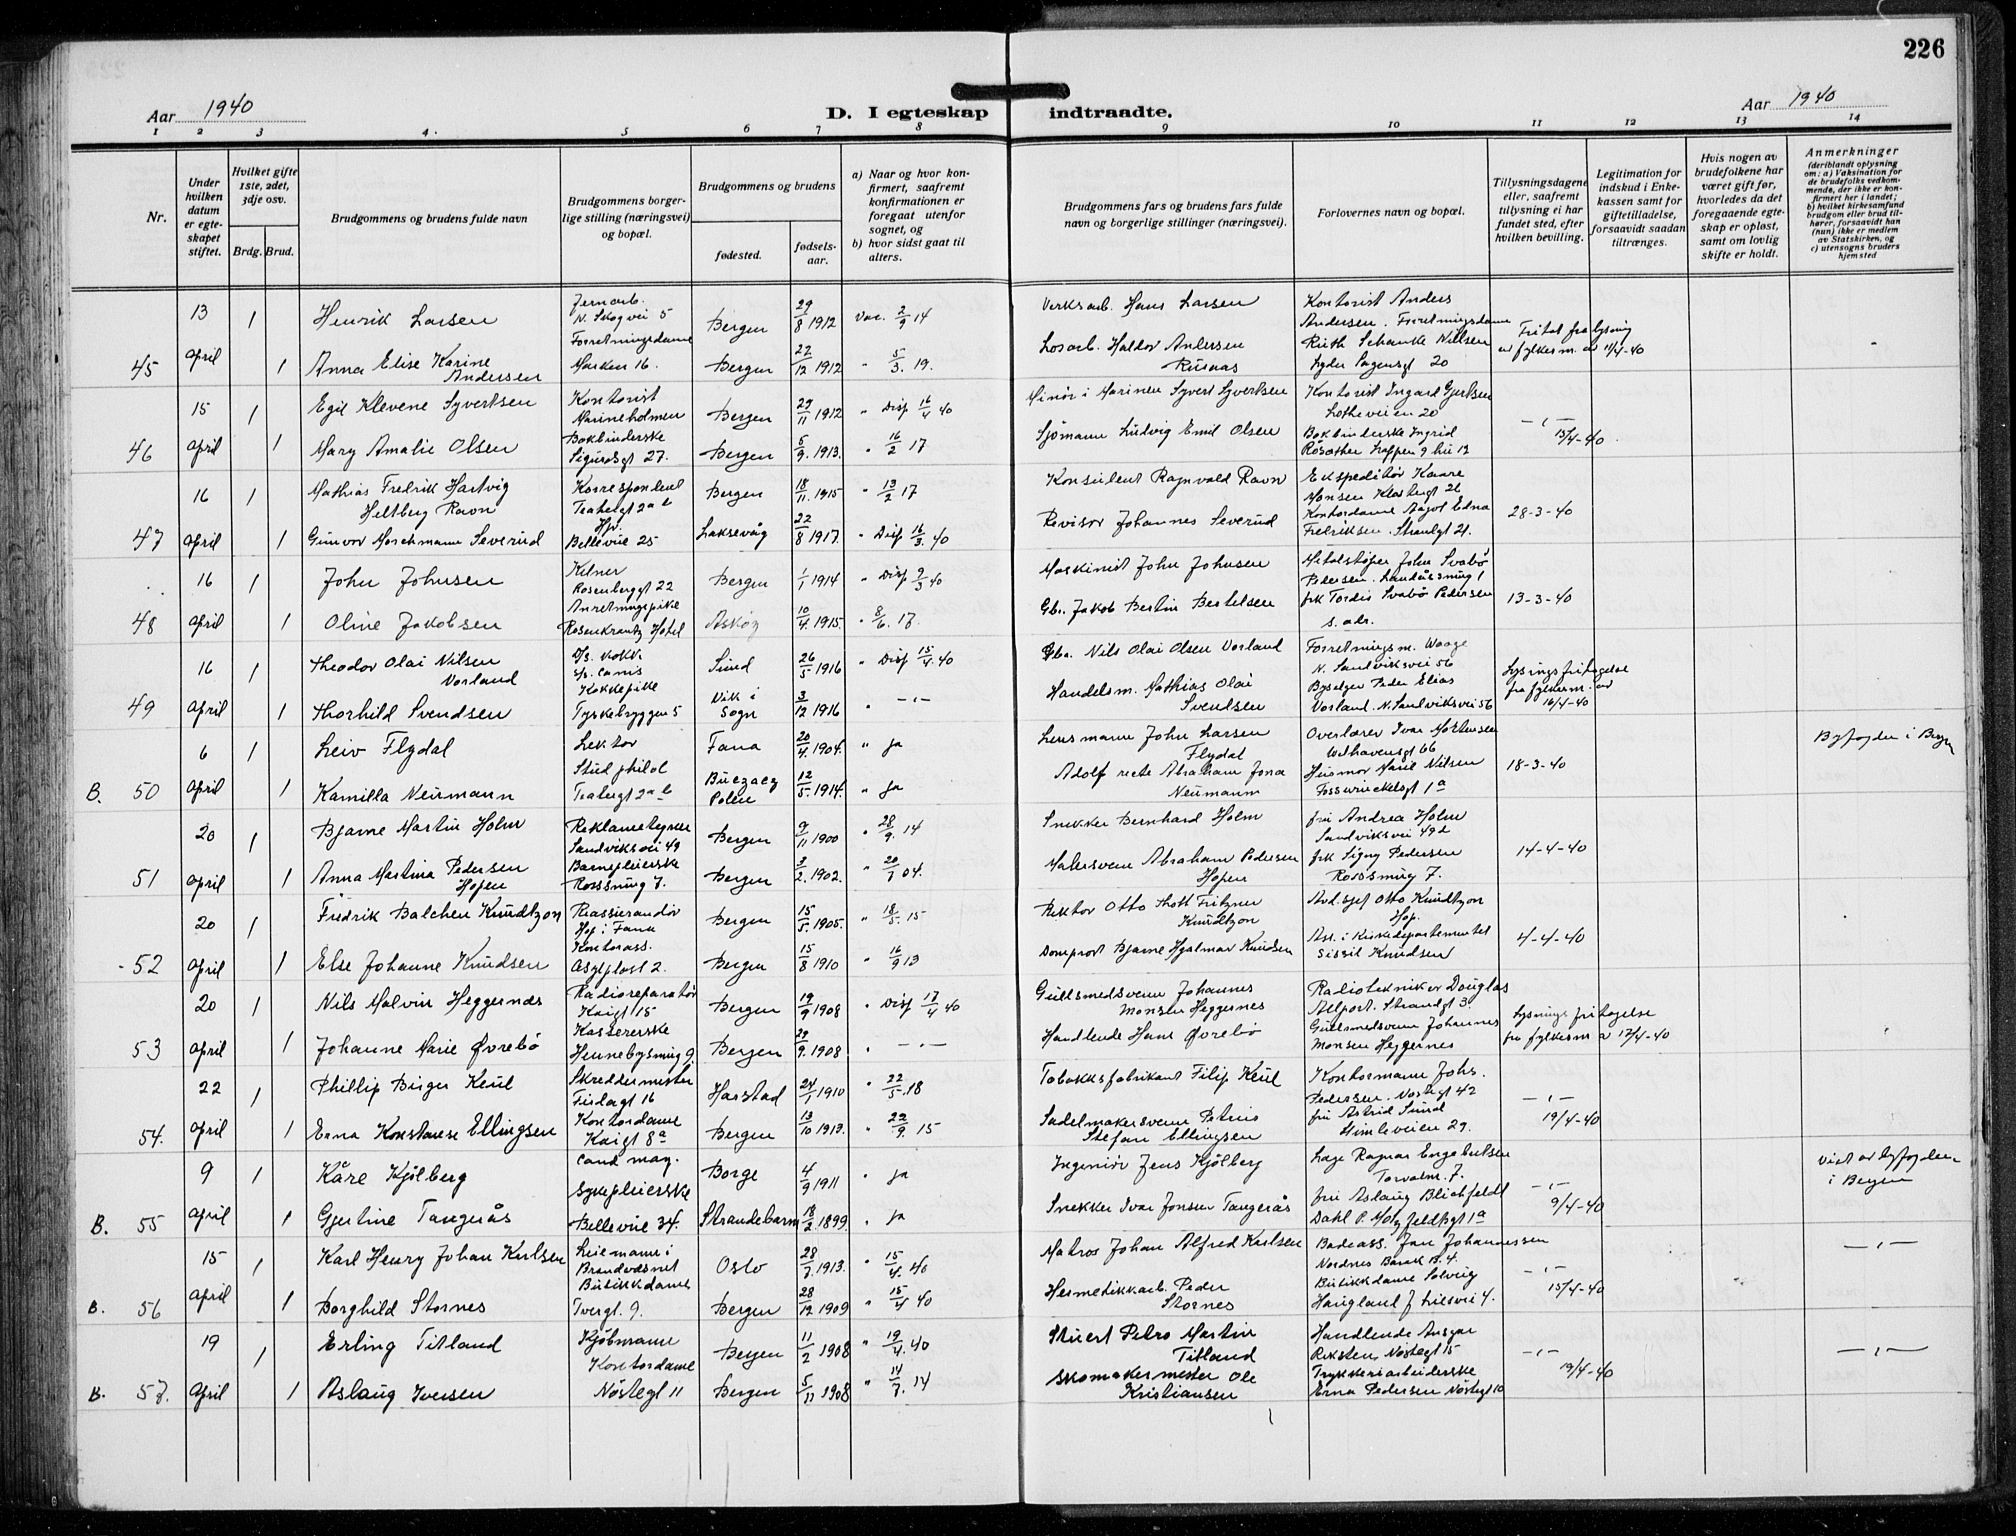 226
Aar 1940
D. I egteskap indtraadte.
Aar 1940
1 2 3 4. 5 6 7 8 9 10 11 12 13 14
Nr.
Under hvilken datum er egteskapet stiftet.
Hvilket gifte 1ste, 2det, 3dje osv.
Brdg. Brud.
Brudgommens og brudens fulde navn
Brudgommens borgerlige stilling (næringsvei) og bopæl.
Brudgommens og brudens
fødested.
fødselsaar.
a) Naar og hvor konfirmert, saafremt konfirmationen er foregaat utenfor sognet, og
b) hvor sidst gaat til alters.
Brudgommens fars og brudens fars fulde navn og borgerlige stillinger (næringsvei).
Forlovernes navn og bopæl.
Tillysningsdagene eller, saafremt tillysning ei har fundet sted, efter hvilken bevilling.
Legitimation for indskud i Enkekassen samt for giftetilladelse, forsaavidt saadan tiltrænges.
Hvis nogen av brudefolkene har været gift før, hvorledes da det foregaaende egteskap er opløst, samt om lovlig skifte er holdt.
Anmerkninger
(deriblandt oplysning om: a) Vaksination for de brudefolks vedkommende, der ikke er konfirmert her i landet; b) hvilket kirkesamfund brudgom eller brud tilhører, forsaavidt han (hun) ikke er medlem av Statskirken, og c) utensogns bruders hjemsted
13 1 Henrik Larsen Jernarb. N. Skogvei 5 Bergen 29/8 1912 Vac. 2/9 14 Verksarb. Hans Larsen Kontorist Anders Andersen. Forretningsdame
45 April 1 Anna Elise Karine Andersen Forretningsdame Marken 16. Bergen 22/12 1912 " 5/3. 19. Losarb. Haldor Andersen Rusnas Ruth Schanke Nillsen Lyder Sagensgt 20 Fritat fra lysing av fylkesm. av 11/4-40
15 1 Egil Klevene Syvertsen Kontorist Marineholmen Bergen 29/11 1912 " Disp 16/4 40 Minør i Marinen Syvert Syvertsen Kontorist Ingard Gjertsen Lotheveien 20
46 April 1 Mary Amalie Olsen Bokbinderske Sigurdsgt 27. Bergen 5/9. 1913. " 16/2 17 Sjømann Ludvig Emil Olsen Bokbinderske Ingrid -"- 15/4-40
16 1 Mathias Fredrik Hartvig Heltberg Ravn Korrespondent Teatergt 2a b Bergen 18/11. 1915 " 13/2 17 Konsulent Ragnvald Ravn Ekspeditør Kaare Monsen Klostergt 26
47 April 1 Gunvor Morchmann Severud Hpr. Bellevue 25 Laksevåg 22/8 1917. " Disp 16/3. 40 Revisor Johannes Severud Kontordame Aagot Edna Fredriksen. Strandgt 21. 28-3-40
16 1 John Johnsen Kelner Rosenberggt 22 Bergen 1/1 1914 " Disp 9/3 40 Maskinist John Johnsen Metalstøper John Svabø Pedersen.
48 April 1 Oline Jakobsen Anretningspike Rosenkrantz Hotel Askøy 10/4. 1915. " 8/6. 17. Gbr. Jakob Bertin Bertelsen frk Tordis Svabø Pedersen s. adr. 13-3-40
16 1 Theodor Olai Nilsen Vorland D/s. kokk. s/s. Canis Sund 26/5 1916 " Disp 15/4. 40 Gbr. Nils Olai Olsen Vorland Forretningsm. Waage N. Sandviksvei 56
49 April 1 Thorhild Svendsen Kokkepike Tyskebryggen 5 Vik i Sogn 3/12 1916 " -"- Handelsm. Mathias Olai Svendsen Byselger Peder Elias Vorland. N. Sandviksvei 56 Lysingsfritagelse fra fylkesm. av 16/4-40
6 1 Leiv Flydal Lektor Fana 20/4. 1904. " ja Lensmann John Larsen Flydal Overlærer Ivar Mortensen Welhavensgt 66 Byfogden i Bergen
B. 50 April 1 Kamilla Neumann Stud philol Teatergt 2a b Buczacz Polen 12/5. 1914. " ja Adolf recte Abraham Jona Neumann Husmor Marie Nilsen Fosswinckelsgt 1a 18-3-40
20 1 Bjarne Martin Holm Reklametegner Sandviksvei 49 Bergen 9/11 1900 " 28/9. 14 Snekker Bernhard Holm fru Andrea Holm Sandviksvei 49b
51 April 1 Anna Martina Pedersen Hopen Barnepleierske Rosesmug 7. Bergen 3/2. 1902. " 20/1 04. Malersvenn Abraham Pedersen Hopen frk Signy Pedersen Rosesmug 7. 14-4-40
20 1 Fredrik Balchen Knudtzon Reassurandør Hop i Fana Bergen 15/5. 1905. " 18/5. 15 Rektor Otto Thott Fritzner Knudtzon Avd. sjef Otto Knudtzon Hop.
52 April 1 Else Johanne Knudsen Kontorass. Asylplass 2. Bergen 15/8 1910 " 16/9 13 Domprost Bjarne Hjalmar Knudsen Ass. i Kirkedepartementet Sissil Knudsen 4-4-40
20 1 Nils Malvin Heggernæs Radioreparatør Kaigt 15 Bergen 19/9 1908 " Disp 17/4 40 Gullsmedsvenn Johannes Monsen Heggernes Radiotekniker Douglas Allport. Strandgt 3
53 April 1 Johanne Marie Øvrebø Kassererske Hennebysmug 9. Bergen 29/9. 1908 " -"- Handlende Hans Øvrebø Gullsmedsvenn Johannes Monsen Heggernes Lysingsfritagelse fra fylkesm av 17/4-40
22 1 Phillip Birger Keul Skreddermester Fjelagt 16 Harstad 24/1 1910 " 22/5. 18 Tobakksfabrikant Filip Keul Kontormann Johs. Pedersen. Nøstegt 42
54. April 1 Erna Konstanse Ellingsen Kontordame Kaigt 8a Bergen 13/10 1913. " 29/9. 15 Sadelmakersvenn Petrus Stefan Ellingsen fru Astrid Sund Himleveien 29. -"- 19/4-40
9 1 Kåre Kjølberg Cand mag. Borge 4/9 1911 " ja Ingeniør Jens Kjølberg Lege Ragnar Engebretsen Torvalm. 7. Viet av byfogden i Bergen
B. 55 April 1 Gjertine Tangerås Sykepleierske Bellevue 34. Strandebarm 18/2. 1899. " ja Snekker Ivar Jonsen Tangerås fru Aslaug Blichfeldt Dahl P. Motzfeldtsgt 1a -"- 9/4-40
15 1 Karl Henry Johan Karlsen Leiemann i Brandvæsnet Oslo 28/7. 1913. " 15/4. 40 Matros Johan Alfred Karlsen Badeass. Jan Johannessen Nordnes Barak B. 4. -"-
B. 56 April 1 Borghild Stornes Butikkdame Tvergt. 9. Bergen 28/12 1909 " 15/4 40 Hermetikkarb. Peder Stornes Butikkdame Solveig Haugland J. Liesvei 4. -"- 15/4-40
19 1 Erling Titland Kjøbmann Bergen 11/2 1908 " 19/4. 40 Stuert Petro Martin Titland Handlende Ansgar Reksten Nøstegt 15 -"-
B. 57. April 1 Aslaug Iversen Kontordame Nøstegt 11 Bergen 5/11 1908 " 14/7. 14 Skomakermester Ole Kristiansen Trykkeriarbeiderske Erna Pedersen Nøstegt 10 -"- 19/4-40